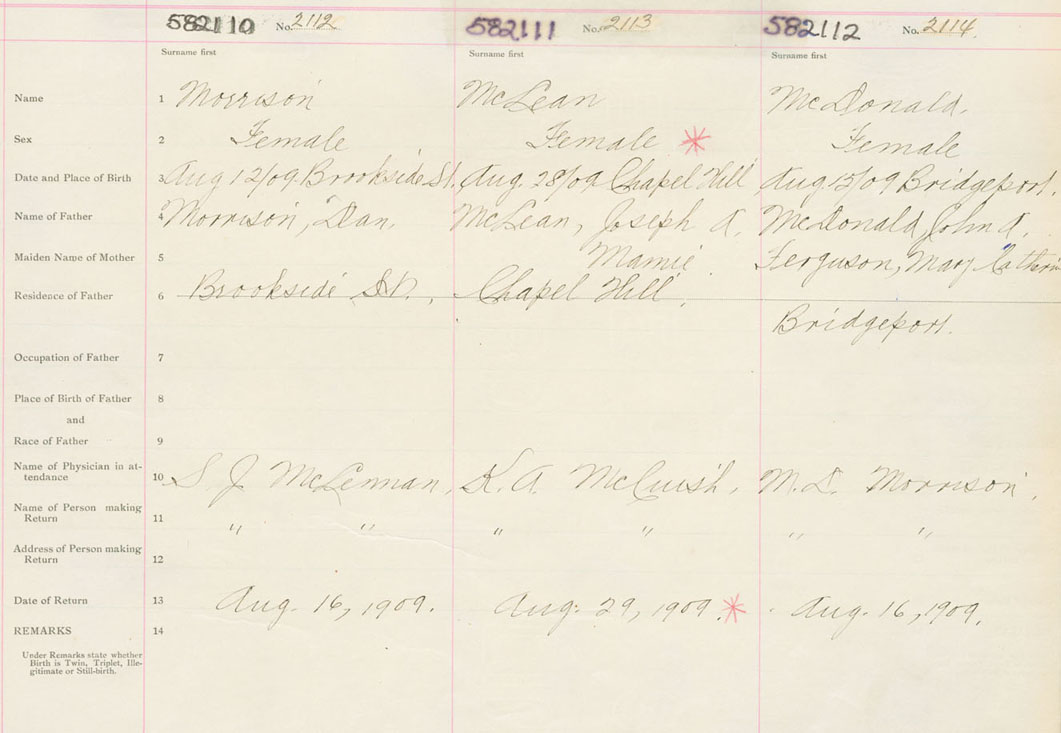 582110 No. 2112 582111 No. 2113 582112 No. 2114
Surname first Surname first Surname first
Name 1 Morrison McLean McDonald.
Sex 2 Female Female * Female
Date and Place of Birth 3 Aug 12/09 Brookside St. Aug. 28/09 Chapel Hill Aug 15/09 Bridgeport
Name of Father 4 Morrison, Dan. McLean, Joseph A. McDonald, John A.
Maiden Name of Mother 5 Mamie Ferguson, Mary Catherin
Residence of Father 6 Brookside St., Chapel Hill,
Bridgeport.
Occupation of Father 7
Place of Birth of Father 8
and
Race of Father 9
Name of Physician in at-
tendance 10 S. J. McLennan, K. A. McCuish, M. D. Morrison,
Name of Person making
Return 11 " " " " " "
Address of Person making
Return 12
Date of Return 13 Aug. 16, 1909. Aug. 29, 1909. * Aug. 16, 1909.
REMARKS 14
Under Remarks state whether
Birth is Twin, Triplet, Ille-
gitimate or Still-birth.